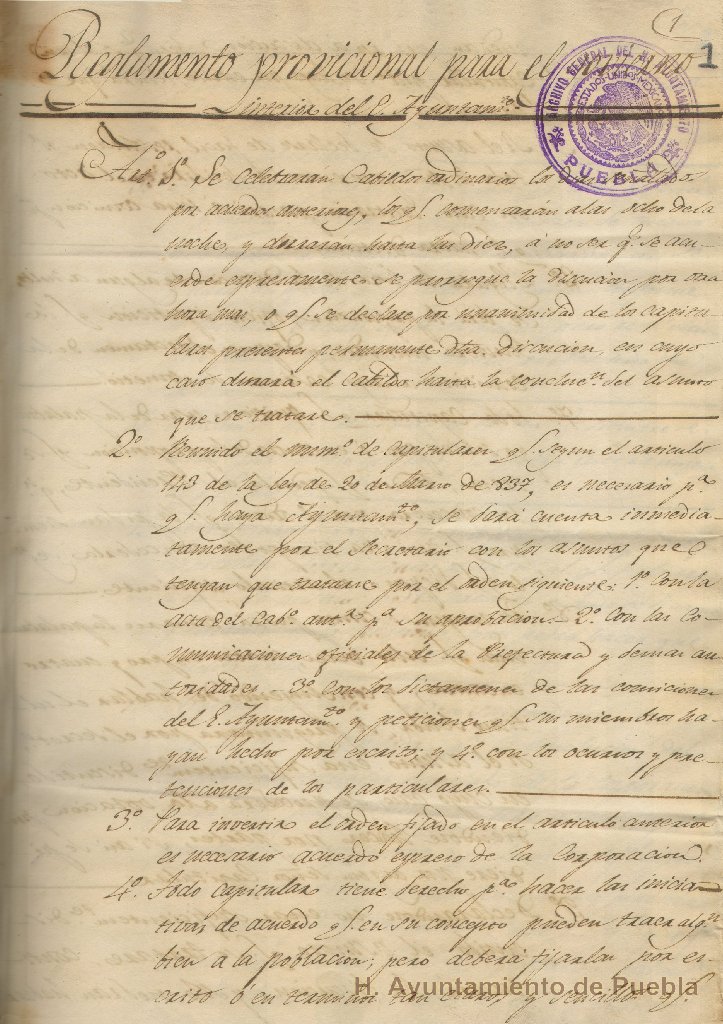 1
1
Reglamento provicional para el
Interior del E. Ayuntam.to
ARCHIVO GENERAL DEL H. AYUNTAMIENTO
ESTADOS UNIDOS MEXICANOS
PUEBLA
Art.o 1.o Se celebraran Cabildos ordinarios los dias
por acuerdos anteriores, los q.e comenzarán a las ocho de la
noche, y durarán hasta las diez, á no ser q.e se acu-
erde espresamente se prorrogue la discucion por otra
hora mas, o q.e se declare por unanimidad de los capitu-
lares presentes permanente dha. discucion, en cuyo
caso durará el Cabildo hasta la conclus.n del asunto
que se tratare.
2.o Reunido el num.o de capitulares q.e segun el articulo
143 de la ley de 20 de Marzo de 837, es necesario p.a
q.e haya Ayuntam.to, se dará cuenta inmedia-
tamente por el Secretario con los asuntos que
tengan que tratarse por el orden siguiente: 1.o Con la
acta del Cab.o ant.r p.a su aprobacion. 2.o Con las Co-
municaciones oficiales de la Prefectura y demas au-
toridades. 3.o Con los dictamenes de las comiciones
del E. Ayuntam.to y peticiones q.e sus miembros ha-
yan hecho por escrito; y 4.o con los ocursos y pre-
tenciones de los particulares.
3.o Para invertir el orden fijado en el articulo anterior
es necesario acuerdo espreso de la Corporacion.
4.o Todo capitular tiene derecho p.a hacer las inicia-
tivas de acuerdo q.e en su concepto pueden traer alg.n
bien a la poblacion; pero deberá fijarlas por es-
crito ó en terminos tan claros, y sencillos q.e
H. Ayuntamiento de Puebla